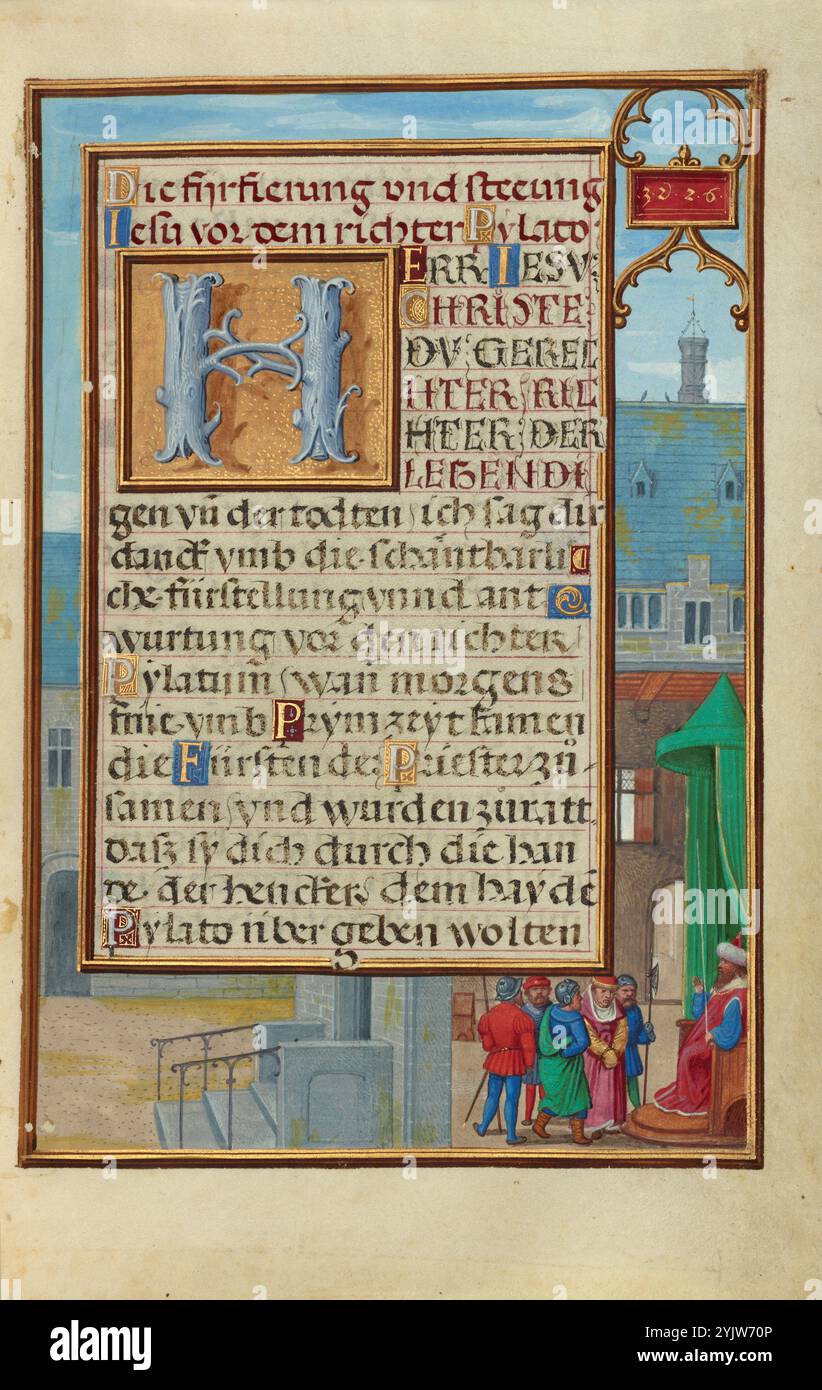 Die fürfierung vnd steeung
Iesu vor dem richter Pylato
·3·V·2·6·
HERR IESV
CHRISTE
DV GEREC
HTER RIC
HTER DER
LEBENDI
gen vn̄ der todten ich sag dir
danck vmb die schantbarli
che fürstellung vnnd ant
wurtung vor den richter
Pylatum̄ wan morgens
frue vmb Prymzeyt kamen
die Fürsten der Priester zů
samen vnd wurden zů ratt
dasz sy dich durch die han
de der hencker dem haydē
Pylato über geben wolten
alamy
alamy
Image ID: 2YJW70P
www.alamy.com